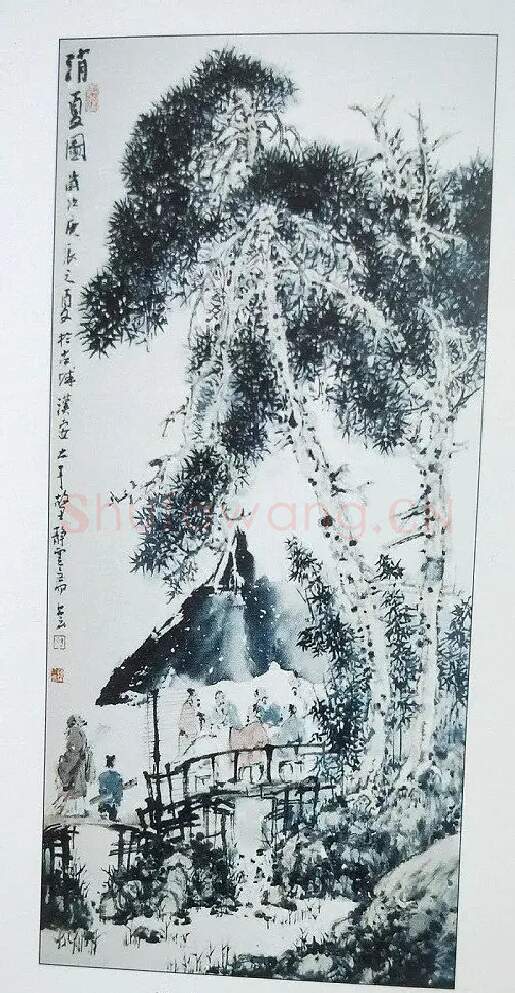 消夏圖
歲次庚辰之夏於古城漢安大千故里靜雲
Shufawang.CN